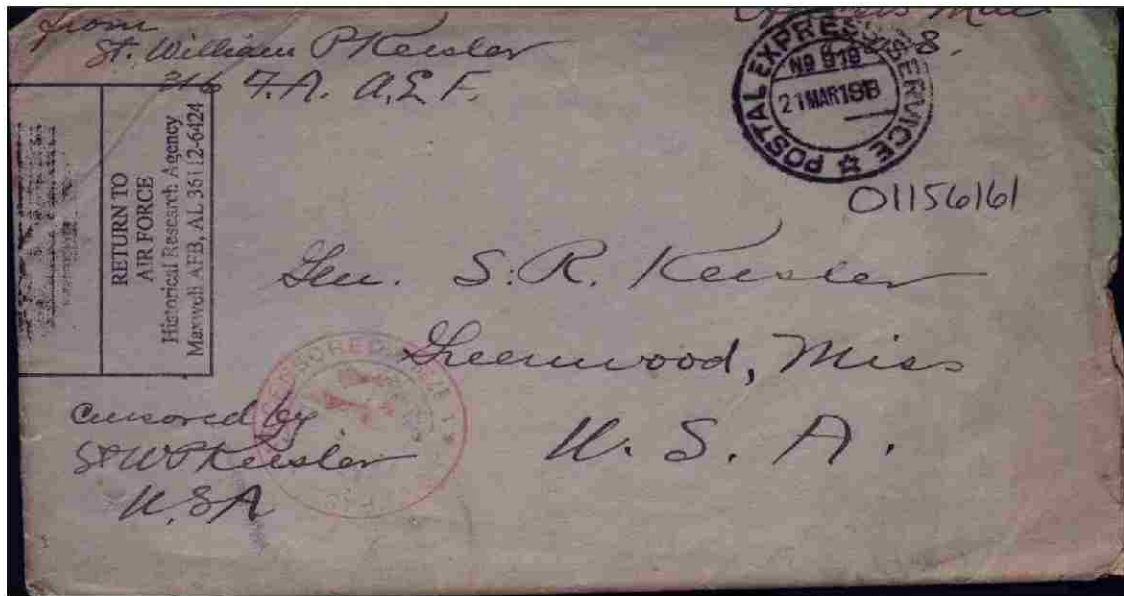 from
St. William P Keesler
316 F.A. A.E.F.
Officers Mail
POSTAL EXPRESS SERVICE
No 918
21 MAR 1918
01156161
RETURN TO
AIR FORCE
Historical Research Agency
Maxwell AFB, AL 36112-6424
Gen. S. R. Keesler
Greenwood, Miss
U. S. A.
CENSORED
Censored by
St W P Keesler
U.S.A